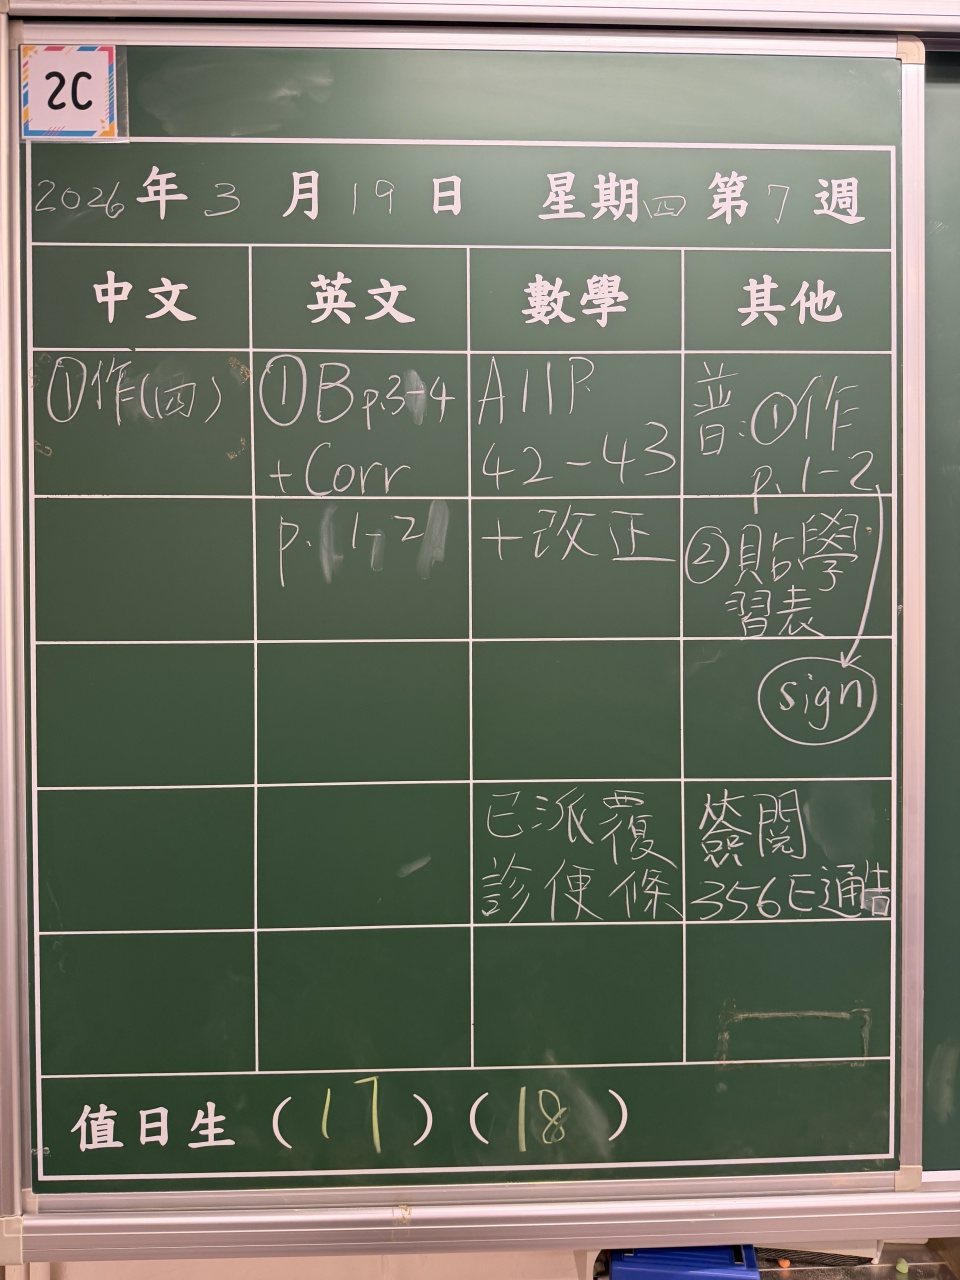 2C
2026年3月19日 星期四第7週
中文 英文 數學 其他
①作(四)
①B p.3-4
+Corr
p.1-2
A11P
42-43
+改正
已派覆
診便條
普:①作
p.1-2
②貼學
習表
sign
簽閱
356E通告
值日生(17)(18)